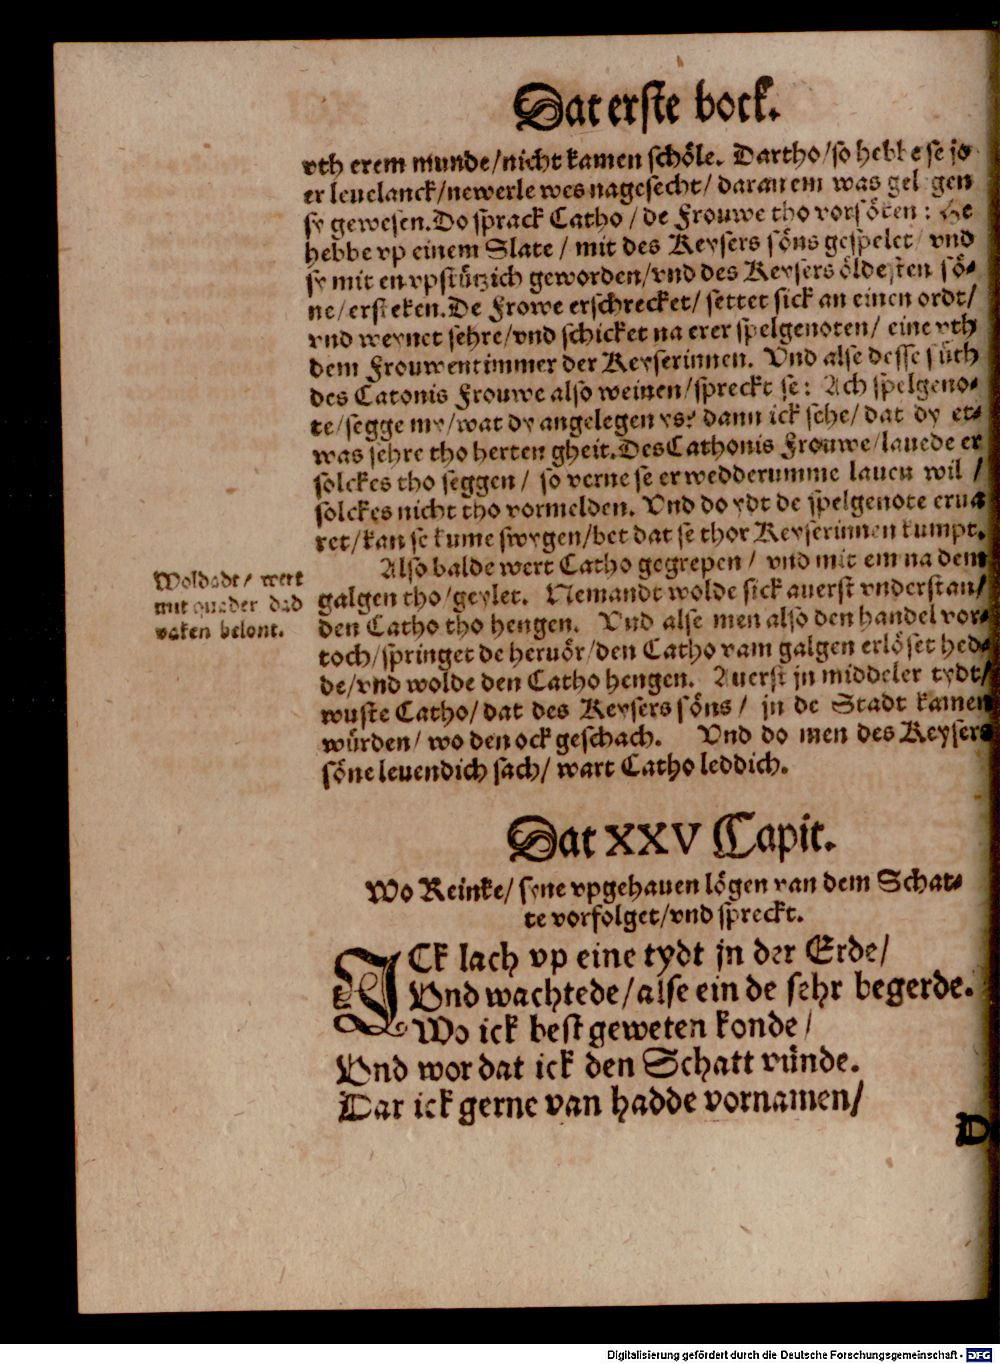 Dat erste bock.
vth erem munde/nicht kamen schöle. Dartho/so hebbe se jo
er leuelanck/newerle wes nagesecht/ daran em was gelegen
sy gewesen. Do sprack Catho / de Frouwe tho vorsöken : He
hebbe vp einem Slate / mit des Keysers söns gespelet/ vnd
sy mit en vpstützich geworden/vnd des Keysers öldesten sö-
ne/ersteken. De Frowe erschrecket/ settet sick an einen ordt/
vnd weynet sehre/vnd schicket na erer spelgenoten/ eine vth
dem Frouwentimmer der Keyserinnen. Vnd alse desse süth
des Catonis Frouwe also weinen/spreckt se: Ach spelgeno-
te/segge my/wat dy angelegen ys? dann ick sehe/ dat dy et-
was sehre tho herten gheit. Des Cathonis Frouwe/lauede er
solckes tho seggen/ so verne se er wedderumme lauen wil /
solckes nicht tho vormelden. Vnd do ydt de spelgenote erua
ret/kan se kume swygen/bet dat se thor Keyserinnen kumpt.
Also balde wert Catho gegrepen/ vnd mit em na dem
galgen tho/geylet. Nemandt wolde sick auerst vnderstan/
den Catho tho hengen. Vnd alse men also den handel vor-
toch/springet de heruör/den Catho vam galgen erlöset hed-
de/vnd wolde den Catho hengen. Auerst jn middeler tydt/
wuste Catho/ dat des Keysers söns / jn de Stadt kamen
würden/ wo den ock geschach. Vnd do men des Keysers
söne leuendich sach/ wart Catho leddich.
Woldadt/ wert
mit quader dad
vaken belont.
Dat XXV Capit.
Wo Reinke/ syne vpgehauen lögen van dem Schat-
te vorfolget/vnd spreckt.
ICk lach vp eine tydt jn der Erde/
Vnd wachtede/alse ein de sehr begerde.
Wo ick best geweten konde/
Vnd wor dat ick den Schatt vünde.
Dar ick gerne van hadde vornamen/
D
Digitalisierung gefördert durch die Deutsche Forschungsgemeinschaft - DFG